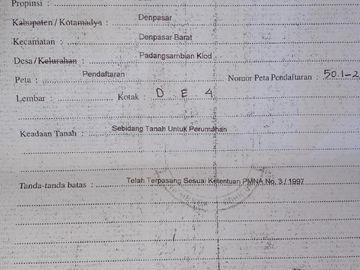 Propinsi :
Kabupaten / Kotamadya : Denpasar
Kecamatan : Denpasar Barat
Desa / Kelurahan : Padangsambian Klod
Peta : Pendaftaran Nomor Peta Pendaftaran : 50.1-2
Lembar : Kotak : D E 4
Keadaan Tanah : Sebidang Tanah Untuk Perumahan
Tanda-tanda batas : Telah Terpasang Sesuai Ketentuan PMNA No. 3 / 1997